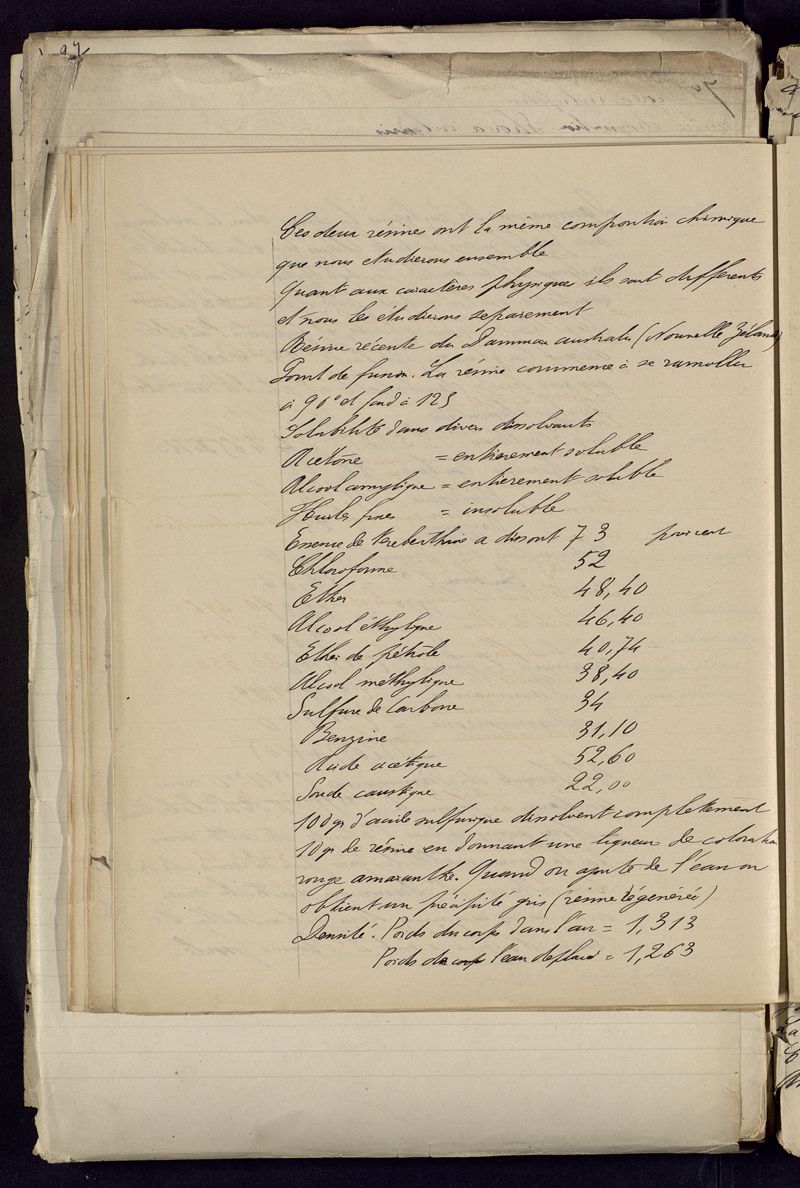 97
Ces deux résines ont la même composition chimique
que nous étudierons ensemble
Quant aux caractères physiques ils sont differents
et nous les étudierons séparement
Résine récente du Dammara australis (Nouvelle Zélande)
Point de fusion. La résine commence à se ramollir
à 90° et fond à 125
Solubilité dans divers dissolvants
Acétone = entièrement soluble
Alcool amylique = entièrement soluble
Huiles fixes = insoluble
Essence de térébenthine a dissout 73 pour cent
Chloroforme 52
Ether 48,40
Alcool éthylique 46,40
Ether de pétrole 40,74
Alcool méthylique 38,40
Sulfure de Carbone 34
Benzine 31,10
Acide acétique 52,60
Soude caustique 22,00
100 gr d'acide sulfurique dissolvent complètement
10 gr de résine en donnant une liqueur de coloration
rouge amaranthe. Quand on ajoute de l'eau on
obtient un précipité gris (résine régénérée)
Densité. Poids du corps dans l'air = 1,313
Poids de corps l'eau déplacé = 1,263